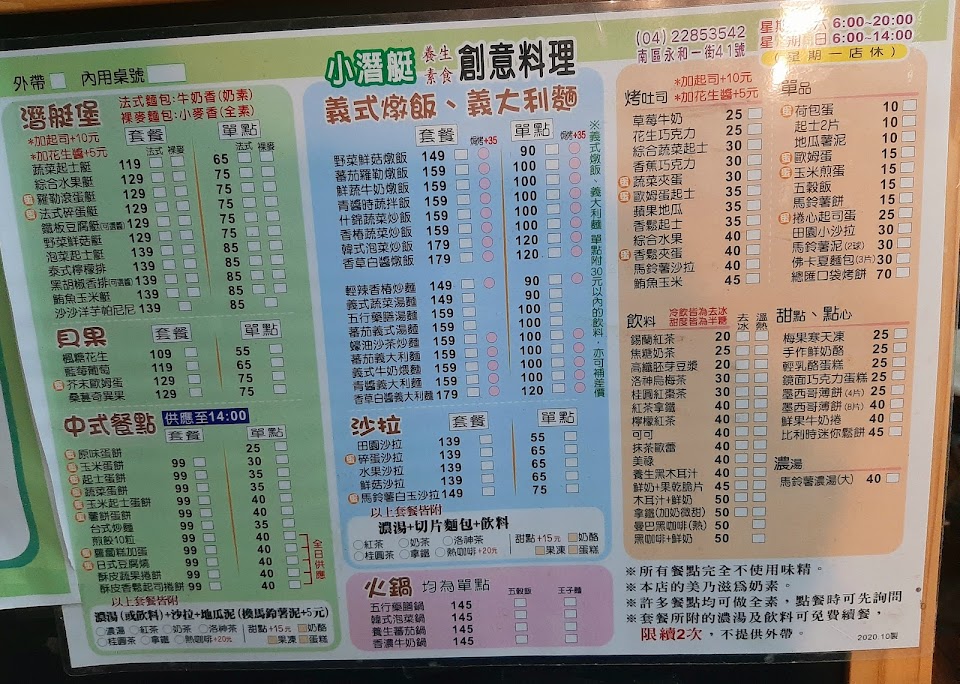 外帶 內用桌號
小潛艇 養生素食 創意料理
(04) 22853542
南區永和一街41號
6:00~20:00
6:00~14:00
(星期一店休)
潛艇堡
法式麵包:牛奶香(奶素)
裸麥麵包:小麥香(全素)
*加起司+10元
*加花生醬+5元
套餐 單點
法式 裸麥 法式 裸麥
蔬菜起士艇 119 65
綜合水果艇 129 75
蛋 羅勒滾蛋艇 129 75
蛋 法式碎蛋艇 129 75
鐵板豆腐艇(可選醬) 129 75
野菜鮮菇艇 129 75
泡菜起士艇 139 85
泰式檸檬排 139 85
黑胡椒香排(可選醬) 139 85
鮪魚玉米艇 139 85
沙沙洋芋帕尼尼 139 85
貝果 套餐 單點
楓糖花生 109 55
藍莓葡萄 119 65
蛋 芥末歐姆蛋 129 75
桑葚奇異果 129 75
中式餐點 供應至14:00
套餐 單點
蛋 原味蛋餅 25
蛋 玉米蛋餅 99 30
蛋 起士蛋餅 99 35
蛋 蔬菜蛋餅 99 35
蛋 玉米起士蛋餅 99 40
蛋 薯餅蛋餅 99 40
台式炒麵 99 35
煎餃10粒 99 40
蛋 蘿蔔糕加蛋 99 40
蛋 日式豆腐燒 99 40
酥皮蔬果捲餅 99 40
酥皮香鬆起司捲餅 99 40
全日供應
以上套餐皆附
濃湯(或飲料)+沙拉+地瓜泥(換馬鈴薯泥+5元)
濃湯 紅茶 奶茶 洛神茶 甜點+15元 奶酪
桂圓茶 拿鐵 熱咖啡+20元 果凍 蛋糕
義式燉飯、義大利麵
套餐 焗烤+35 單點 焗烤+35
野菜鮮菇燉飯 149 90
蕃茄羅勒燉飯 159 100
鮮蔬牛奶燉飯 159 100
青醬時蔬拌飯 159 100
什錦蔬菜炒飯 159 100
香椿蔬菜炒飯 159 100
韓式泡菜炒飯 179 120
香草白醬燉飯 179 120
輕辣香椿炒麵 149 90
義式蔬菜湯麵 149 90
五行藥膳湯麵 149 90
蕃茄義式湯麵 149 90
蠔油沙茶炒麵 149 90
蕃茄義大利麵 149 90
義式牛奶煨麵 159 100
青醬義大利麵 159 100
香草白醬義大利麵 179 120
※義式燉飯、義大利麵 單點附30元以內的飲料,亦可補差價
沙拉 套餐 單點
田園沙拉 139 55
蛋 碎蛋沙拉 139 65
水果沙拉 139 65
鮮菇沙拉 139 65
蛋 馬鈴薯白玉沙拉 149 75
以上套餐皆附
濃湯+切片麵包+飲料
紅茶 奶茶 洛神茶 甜點+15元 奶酪
桂圓茶 拿鐵 熱咖啡+20元 果凍 蛋糕
火鍋 均為單點 五穀飯 王子麵
五行藥膳鍋 145
韓式泡菜鍋 145
養生蕃茄鍋 145
香濃牛奶鍋 145
烤吐司 *加起司+10元
*加花生醬+5元
草莓牛奶 25
花生巧克力 25
綜合蔬菜起士 30
香蕉巧克力 30
蛋 蔬菜夾蛋 30
蛋 歐姆蛋起士 35
蘋果地瓜 35
香鬆起士 35
綜合水果 40
蛋 香鬆夾蛋 40
馬鈴薯沙拉 40
鮪魚玉米 45
單品
蛋 荷包蛋 10
起士2片 10
地瓜薯泥 10
蛋 歐姆蛋 15
蛋 玉米煎蛋 15
玉穀飯 15
馬鈴薯餅 15
蛋 捲心起司蛋 25
田園小沙拉 30
馬鈴薯泥(2球) 30
佛卡夏麵包(3片) 30
總匯口袋烤餅 70
飲料 冷飲皆為去冰
甜度皆為半糖
去冰 溫熱
錫蘭紅茶 20
焦糖奶茶 25
高纖胚芽豆漿 20
洛神烏梅茶 30
桂圓紅棗茶 30
紅茶拿鐵 40
檸檬紅茶 40
可可 40
抹茶歐蕾 40
美祿 40
養生黑木耳汁 40
鮮奶+果乾脆片 45
木耳汁+鮮奶 50
拿鐵(加奶微甜) 50
曼巴黑咖啡(熱) 50
黑咖啡+鮮奶 50
甜點、點心
梅果寒天凍 25
手作鮮奶酪 25
輕乳酪蛋糕 25
鏡面巧克力蛋糕 25
墨西哥薄餅(4片) 25
墨西哥薄餅(8片) 40
鮮果牛奶捲 40
比利時迷你鬆餅 45
濃湯
馬鈴薯濃湯(大) 40
※所有餐點完全不使用味精。
※本店的美乃滋爲奶素。
※許多餐點均可做全素,點餐時可先詢問
※套餐所附的濃湯及飲料可免費續餐,
限續2次,不提供外帶。
2020.10製